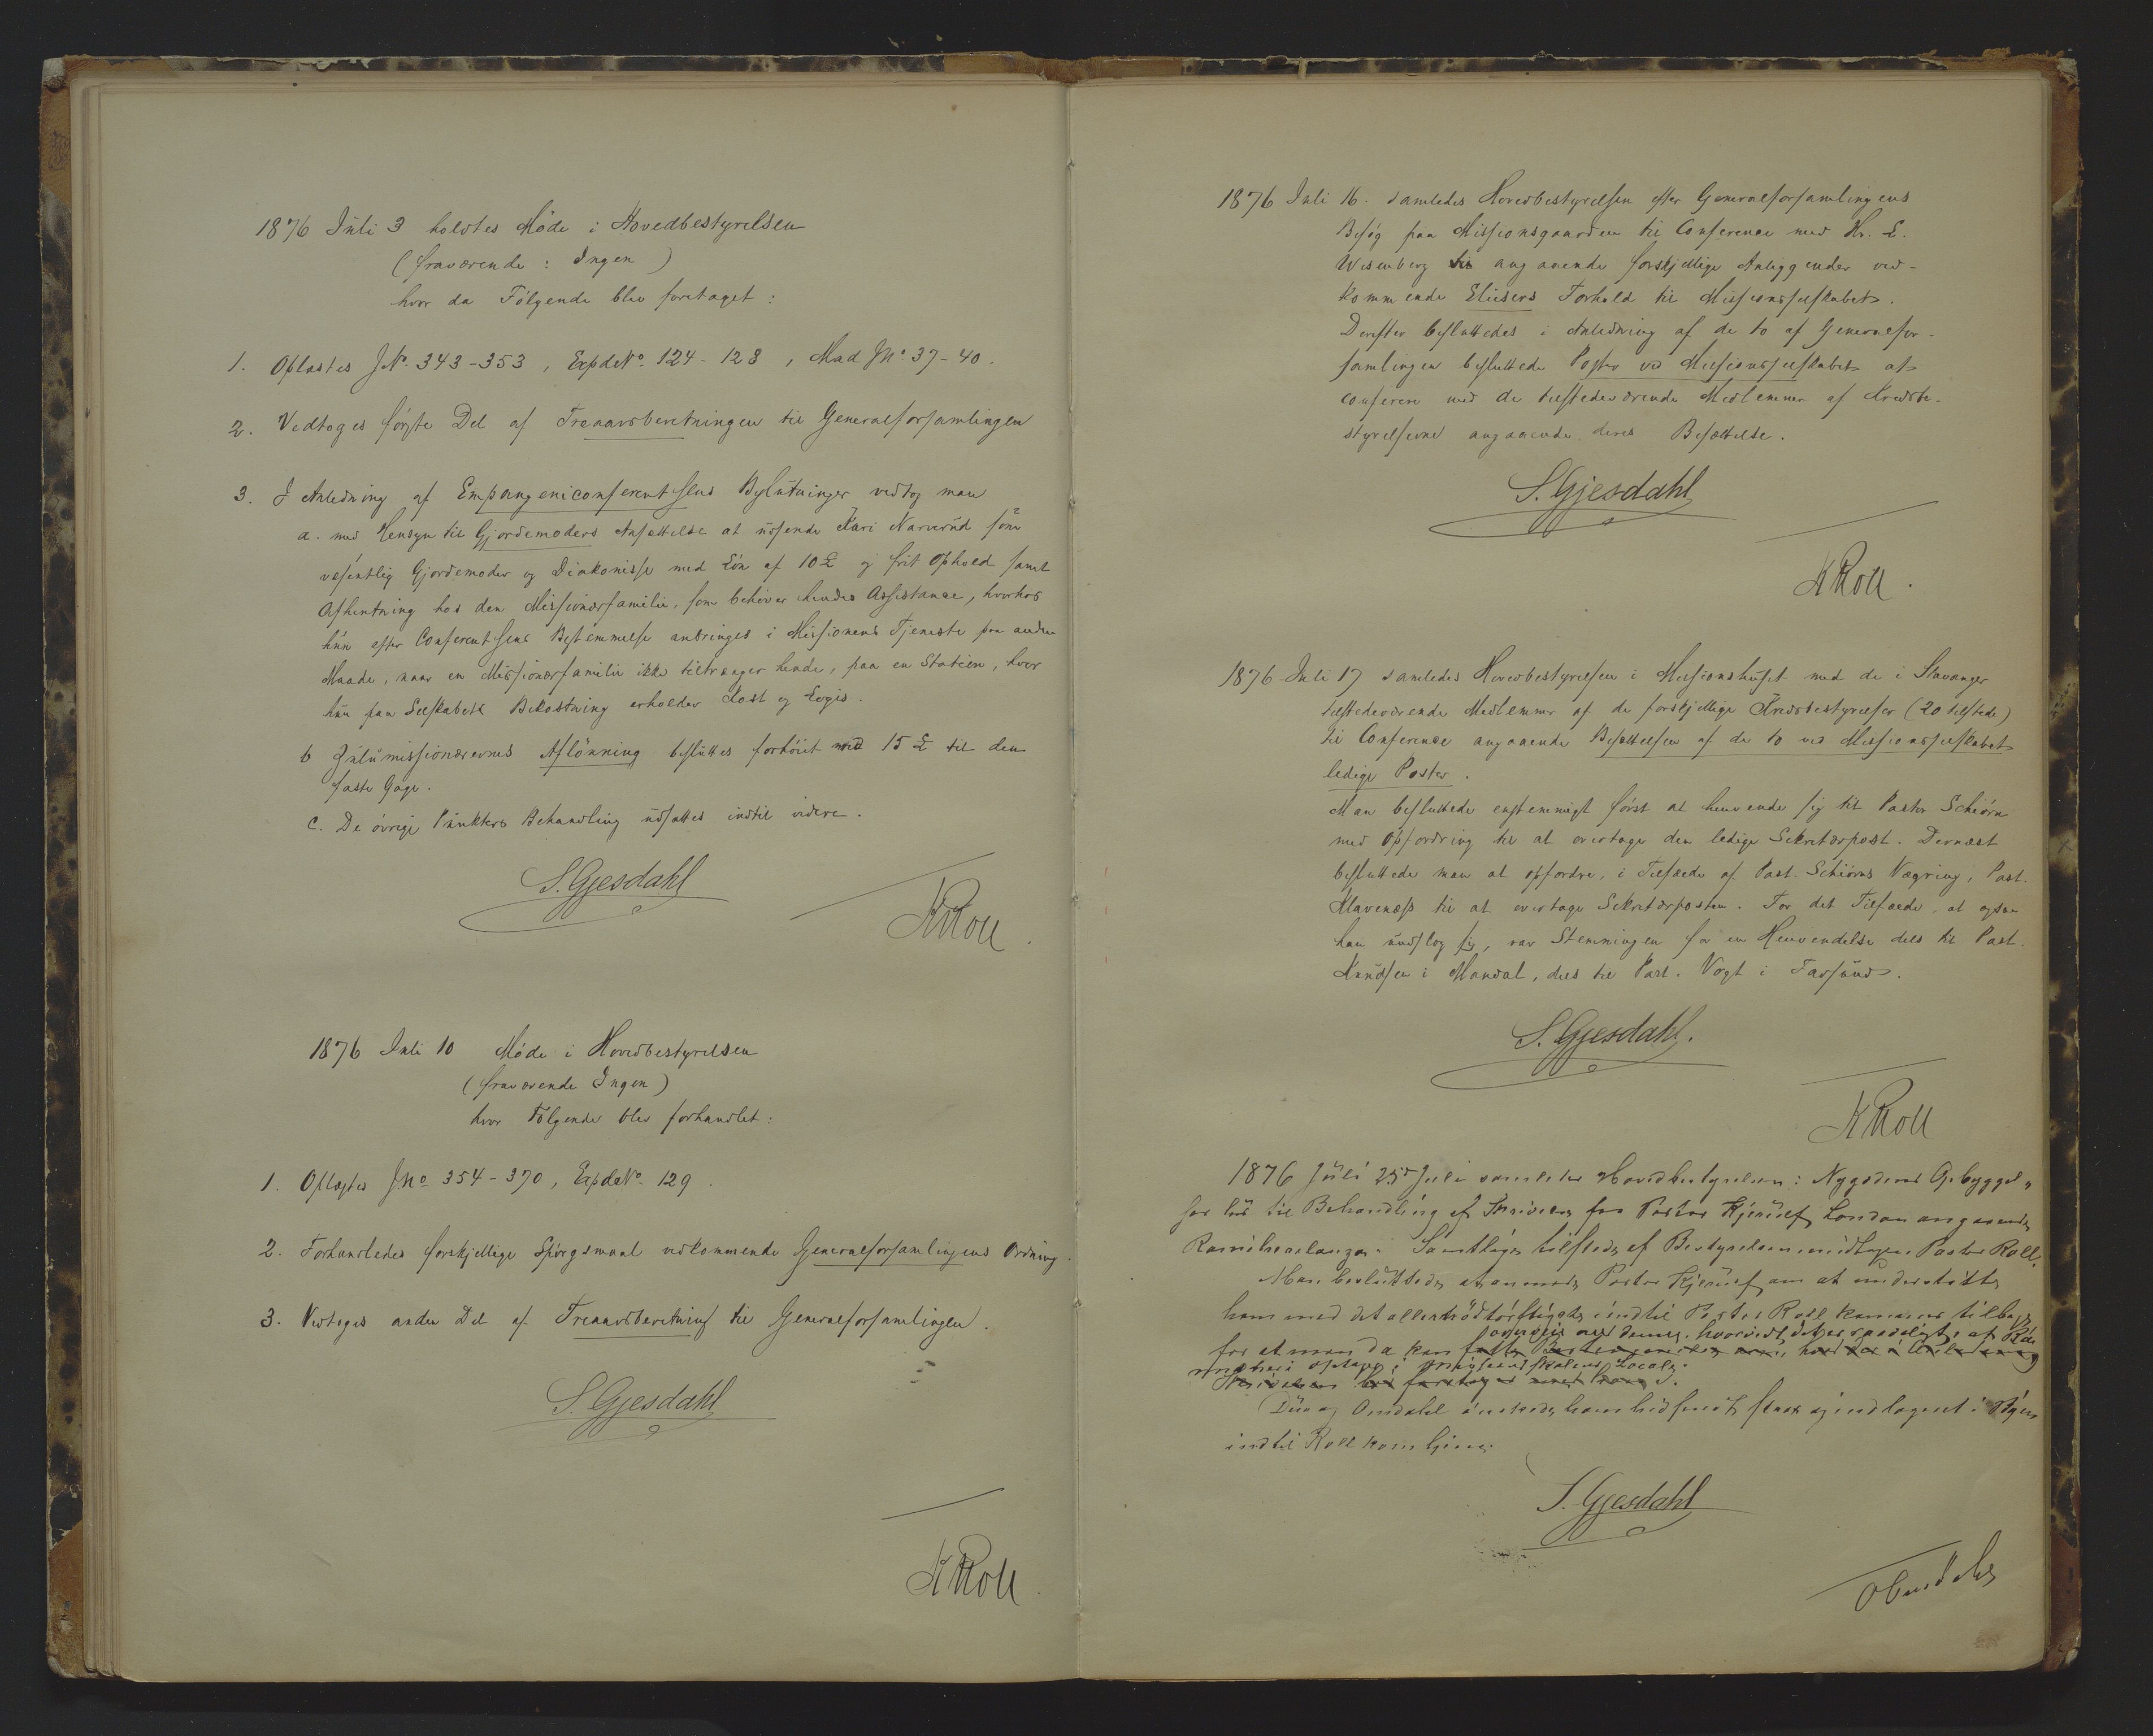 1876 Juli 3 holdtes Møde i Hovedbestyrelsen
(fraværende: Ingen)
hvor da Følgende blev foretaget:
1. Oplæstes J№ 343-353, Expd№ 124-128, Mad J№ 37-40.
2. Vedtoges første Del af Treaarsberetningen til Generalforsamlingen
3. I Anledning af Empangeniconferentsens Beslutninger vedtog man
a. med Hensyn til Gjordemoders Ansættelse at udsende Kari Narverud som
væsentlig Gjordemoder og Diakonisse med Løn af 10 £ og frit Ophold samt
Afhentning hos den Missionærfamilie, som behøver hendes Assistance, hvorhos
hun efter Conferentsens Bestemmelse anbringes i Missionens Tjeneste paa anden
Maade, naar en Missionærfamilie ikke tiltrænger hende, paa en Station, hvor
hun paa Selskabets Bekostning erholder Kost og Logis.
b Zulumissionærernes Aflønning besluttes forhøiet med 15 £ til den
faste Gage.
c. De øvrige Punkters Behandling udsattes indtil videre.
S. Gjesdahl
K Roll
1876 Juli 10 Møde i Hovedbestyrelsen
(fraværende Ingen)
hvor Følgende blev forhandlet:
1. Oplæstes J№ 354-370, Expd№ 129.
2. Forhandledes forskjellige Spørgsmaal vedkommende Generalforsamlingens Ordning.
3. Vedtoges anden Del af Treaarsberetning til Generalforsamlingen.
S. Gjesdahl
K Roll
1876 Juli 16. samledes Hovedbestyrelsen efter Generalforsamlingens
Besøg paa Missionsgaarden til Conference med Hr. L.
Wisenberg til angaaende forskjellige Anliggender ved-
kommende Eliesers Forhold til Missionsselskabet.
Derefter besluttedes i Anledning af de to af Generalfor-
samlingen besluttede Poster ved Missionsselskabet at
conferere med de tilstedeværende Medlemmer af Kredsbe-
styrelserne angaaende deres Besættelse.
S. Gjesdahl
K Roll.
1876 Juli 17 samledes Hovedbestyrelsen i Missionshuset med de i Stavanger
tilstedeværende Medlemmer af de forskjellige Kredsbestyrelser (20 tilstede)
til Conference angaaende Besættelsen af de to ved Missionsselskabet
ledige Poster.
Man besluttede enstemmigt først at henvende sig til Pastor Schiørn
med Opfordring til at overtage den ledige Sekretærpost. Dernæst
besluttede man at opfordre, i Tilfælde af Past. Schiørns Vægring, Past.
Klavenæss til at overtage Sekretærposten. For det Tilfælde, at ogsaa
han undslog sig, var Stemningen for en Henvendelse dels til Past.
Knudsen i Mandal, dels til Past. Vogt i Farsund.
S. Gjesdahl.
K Roll
1876 Juli 25de Juli samledes Hovedbestyrelsen i
til Behandling af Skrivelse fra Pastor Kjerulf, London angaaende
Samtlige tilstede af Bestyrelsen undtagen Pastor Roll.
Man besluttede at anmode Pastor Kjerulf om at understøtte
ham med det allernødtørftigste indtil Pastor Roll kommer tilbage,
for at man da kan
Omdahl ønskede ham hidsendt strax og indlagent i Byen
indtil Roll kom hjem.
S. Gjesdahl